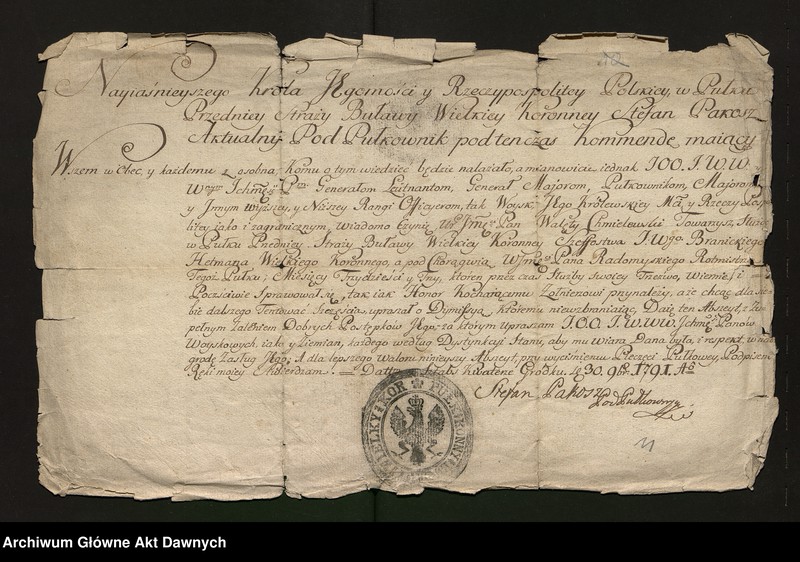 Nayiaśnieyszego Krola JEgomości y Rzeczypospolitey Polskiey, w Pułku
Przedniey Straży Buławy Wielkiey Koronney Stefan Pakosz
Aktualny Pod Pułkownik podtenczas kommendę maiący
Wszem w Obec, y każdemu z osobna, Komu o tym wiedzieć będzie należało, a mianowicie iednak JOO. J.W.W.
Generałom Leitnantom, Generał Majorom, Pułkownikom, Majorom
y Jnnym wyższey, y Niższey Rangi Officyerom, tak Woysk JEgo Krolewskiey Mci, y Rzeczy Pos
litey iako i zagranicznym, wiadomo czynię Pan Walęty Chmielewski Towarzysz, Służąc
w Pułku Przedniey Straży Buławy Wielkiey Koronney Szeffostwa J.W.go Branickiego
Hetmana Wielkiego Koronnego, a pod Chorągwią Pana Radomyskiego Rotmistrza
Tegoż Pułku; Miesięcy Trzydzieści y Trzy, ktoren przez czas Służby swoiey Trzeźwo, Wiernie, i
Poczciwie Sprawował się, tak iak Honor Kochaiącemu Żołnierzowi przynależy, a że chcąc dla sie
bie dalszego Tentować Szczęścia, upraszał o Dymissyą, ktoremu niewzbraniaiąc, Daię ten Abszeyt, z Zu
pełnym Zaleniem Dobrych Postępkow JEgo; za ktorym Upraszam J.O.O. J.W.W.W. Jchmć Panow
Woyskowych, iako y Ziemian, każdego według Dystynkcyi Stanu, aby mu wiara Dana była, i respekt, w na
grodę Zasług JEgo; A dla lepszego Waloru ninieyszy Abszeyt, przy wyciśnieniu Pieczęci Pułkowey, Podpisem
Ręki moiey stwierdzam. Kwaterze Grodku. D. 30. 9bris. 1791. Ao
Stefan Pakosz Pod Pułkownik
WIELKY KOR PUŁK KONNY
11
Archiwum Główne Akt Dawnych